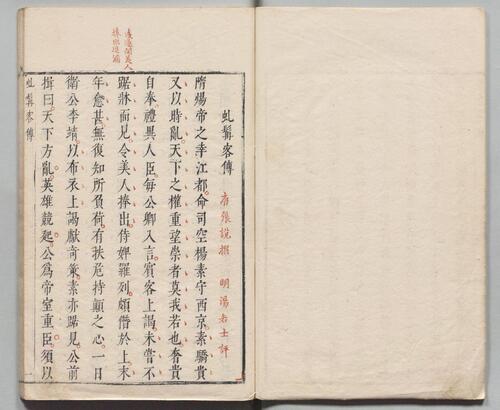 虬髯客傳 唐張說撰 明湯若士評
隋煬帝之幸江都命司空楊素守西京素驕貴
又以時亂天下之權重望崇者莫我若也奢貴
自奉禮異人臣每公卿入言賓客上謁未嘗不
踞牀而見令美人捧出侍婢羅列頗僭於上末
年愈甚無復知所負荷有扶危持顛之心一日
衛公李靖以布衣上謁獻奇策素亦踞見公前
揖曰天下方亂英雄競起公爲帝室重臣須以
虬髯客傳 一